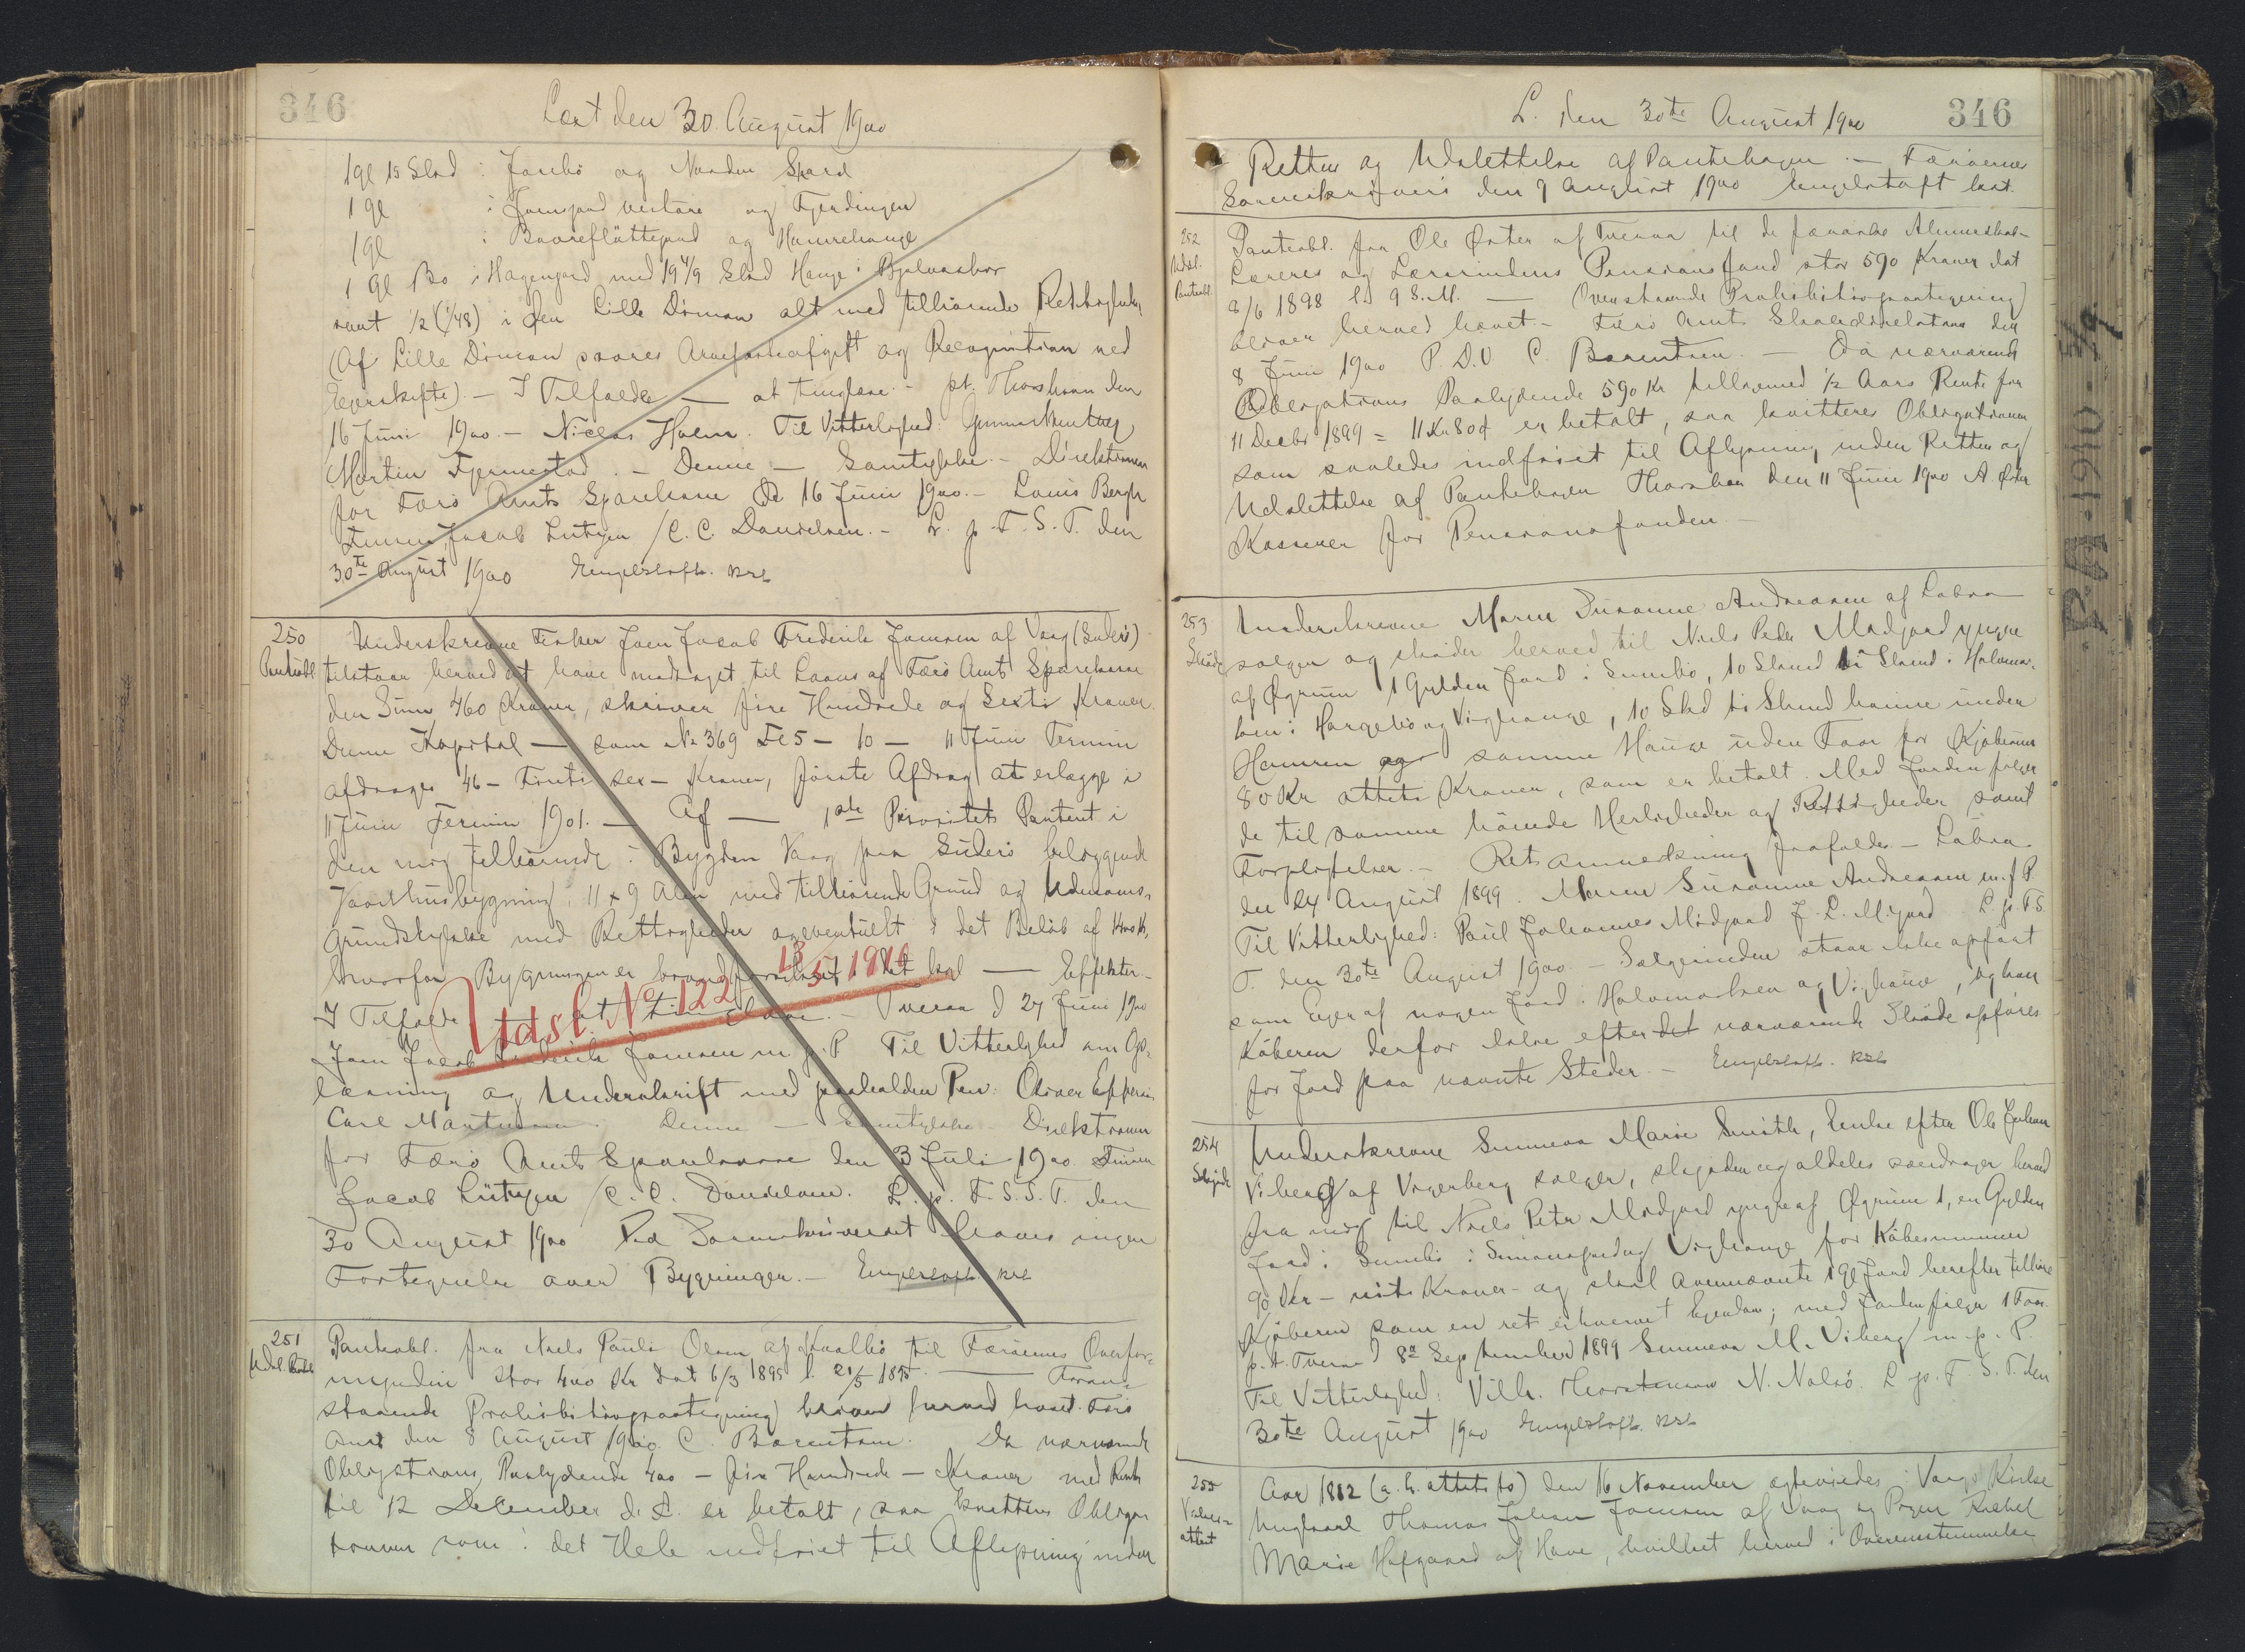 346
Læst den 30. August 1900
1 Gl 15 Sknd i Jansbö og Norden Skard
1 Gl i Joensgard vestare og Fjerdingen
1 Gl i Bavreflöttegard og Hamrehauge
1 Gl Bo i Hagengard med 19 4/9 Sknd Hauge i
samt 1/2 (1/48) i den Lille Dimon alt med tilhörende Rettigheder
(Af Lille Dimon svares Arvefæsteafgift og Recognition ved
Ejerskifte). — I Tilfælde — at tinglæse. — pt. Thorshavn den
16 Juni 1900. — Niclas Holm. Til Vitterlighed:
Martin Fjermestad. — Denne — Samtykke. — Direktionen
for Færö Amts Sparekasse D 16 Juni 1900. — Louis Bergh
Jacob Lützen / C. C. Danielsen. — L. p. F. S. T. den
30te August 1900 Engelstoft. kst
250
Panteobl.
Underskrevne Fisker Joen Jacob Frederik Joensen af Vaag (Suderö)
tilstaar herved at have modtaget til Laans af Færö Amts Sparekasse
den Sum 460 Kroner, skriver fire Hundrede og Sexti Kroner.
Denne Kapital — som No 369 — 10 — 11 Juni Termin
afdrages 46 — Fürti sex — Kroner, förste Afdrag at erlægge i
11 Juni Termin 1901. — Af — 1ste Prioritets Panteret i
den mig tilhörende i Bygden Vaag paa Suderö beliggende
Vaanhusbygning, 11 x 9 Alen med tilhörende Grund og Udenoms-
grundstykke med Rettigheder og eventuelt i det Belöb af 1400 Kr,
hvorfor Bygningen er brandforsikret i det hol — Effekter —
I Tilfælde — at tinglæse. — Tveraa D 27 Juni 1900
Joen Jacob Frederik Joensen m. f. P. Til Vitterlighed om Op-
læsning og Underskrift med paaholden Pen: Oliver Effersöe,
Carl Mortensen. Denne — Samtykke. Direktionen
for Færö Amts Sparekasse den 3 Juli 1900.
Jacob Lützen / C. C. Danielsen. L. p. F. S. S. T. den
30 August 1900 Ved Sorenskriveriet haves ingen
Fortegnelse over Bygningen. — Engelstoft. kst
Udsl. No 122 13/5 1910
251
Udsl. Pantobl
Panteobl. fra Niels Pauli Olsen af Kvalbö til Færöernes Overfor-
mynderi stor 400 Kr dat 6/3 1895 l. 21/5 1895. — Foran-
staaende Prohibitivpaategning bliver herved hævet. Færö
Amt den 8 August 1900. C. Bærentsen. Da nærværende
Obligations Paalydende 400 — fire Hundrede — Kroner med Rente
til 12 December d. A. er betalt, saa kvitteres Obliga-
tionen som i det Hele indfriet til Aflysning inden
L. den 30te August 1900
346
Retten og Udslettelse af Pantebogen. — Færöernes
Sorenskriveri den 9 August 1900 Engelstoft kst.
252
Udsl.
Panteobl.
Panteobl. fra Ole Öster af Tveraa til de færöiske Almueskole-
Læreres og Lærerinders Pensionsfond stor 590 Kroner dat
8/6 1898 — Ovenstaaende Prohibitivpaategning
bliver herved hævet. — Færö Amts Skoledirektion den
8 Juni 1900 P. D. V. C. Bærentsen. — Da nærværende
Obligations Paalydende 590 Kr tilligemed 1/2 Aars Rente fra
11 Decbr 1899 = 11 Kr 80 Ø er betalt, saa kvitteres Obligationen
som saaledes indfriet til Aflysning inden Retten og
Udslettelse af Pantebogen Thorshavn den 11 Juni 1900
Kasserer for Pensionsfonden —
253
Skøde
Underskrevne Maren Susanne Andreasen af Labra
sælger og skøder herved til Niels Peder Midjord yngre
af Øgrum 1 Gylden Jord i Sumbö, 10 Sknd ti Skind i Halvmar-
ken i Hørgebö og Vighauge, 10 Skd ti Skind hauge under
Hamren og samme Hauge uden Faar for Kjöbesum
80 Kr ottete Kroner, som er betalt. Med Jorden fölger
de til samme hörende Herligheder og Rettigheder samt
Forpligtelser. — Rets anmerkning frafaldes — Labra
den 24 August 1899. Maren Susanne Andreasen m. f. P.
Til Vitterlighed: Paul Johannes Midjord J. L. Midjord L. p. F. S.
T. den 30te August 1900 — Sælgerinden staar ikke opfört
som Ejer af nogen Jord i Halvmarken og Vighauge, og kan
Köberen derfor ikke efter det nærværende Sköde opföres
for Jord paa nævnte Steder. — Engelstoft. kst
254
Skjøde
Underskrevne Sunneva Marie Smith, Enke efter Ole Johan
Viberg af Vagerberg sælger, skjøder og aldeles overdrager herved
fra mig til Niels Peter Midjord yngre af Øgrum 1, en Gylden
Jord i Sumbö i Simonsgard og Vighauge for Købesummen
90 Kr — niti Kroner — og skal ovennævnte 1 Gl Jord herefter tilhöre
Kjöberen som en ret erhvervet Ejendom; med Jorden fölger 1 Faar.
p. t. Tveraa D 8de September 1899 Sunneva M. Viberg m. f. P.
Til Vitterlighed: Vilh. Thorsteinson N. Nolsö. L. p. F. S. T. den
30te August 1900 Engelstoft. kst
255
Vielses-
attest
Aar 1882 (a. h. ottete to) den 16 November ægteviedes i Vaags Kirke
Ungkarl Thomas Johan Joensen af Vaag og Pigen Rakel
Marie Hofgaard af Hove, hvilket herved i Overensstemmelse